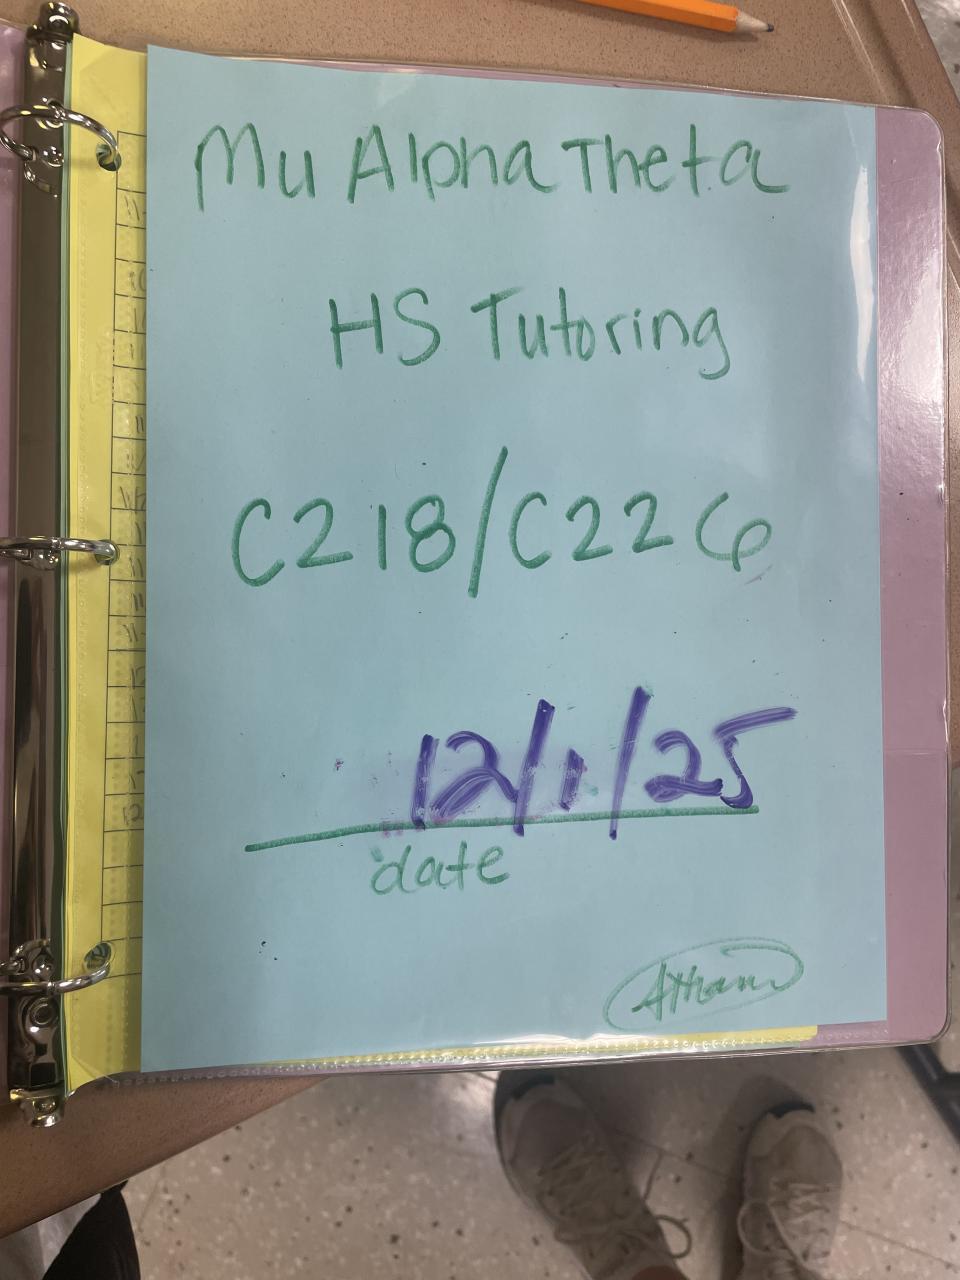 Mu Alpha Theta
HS Tutoring
C218/C226
12/1/25
date